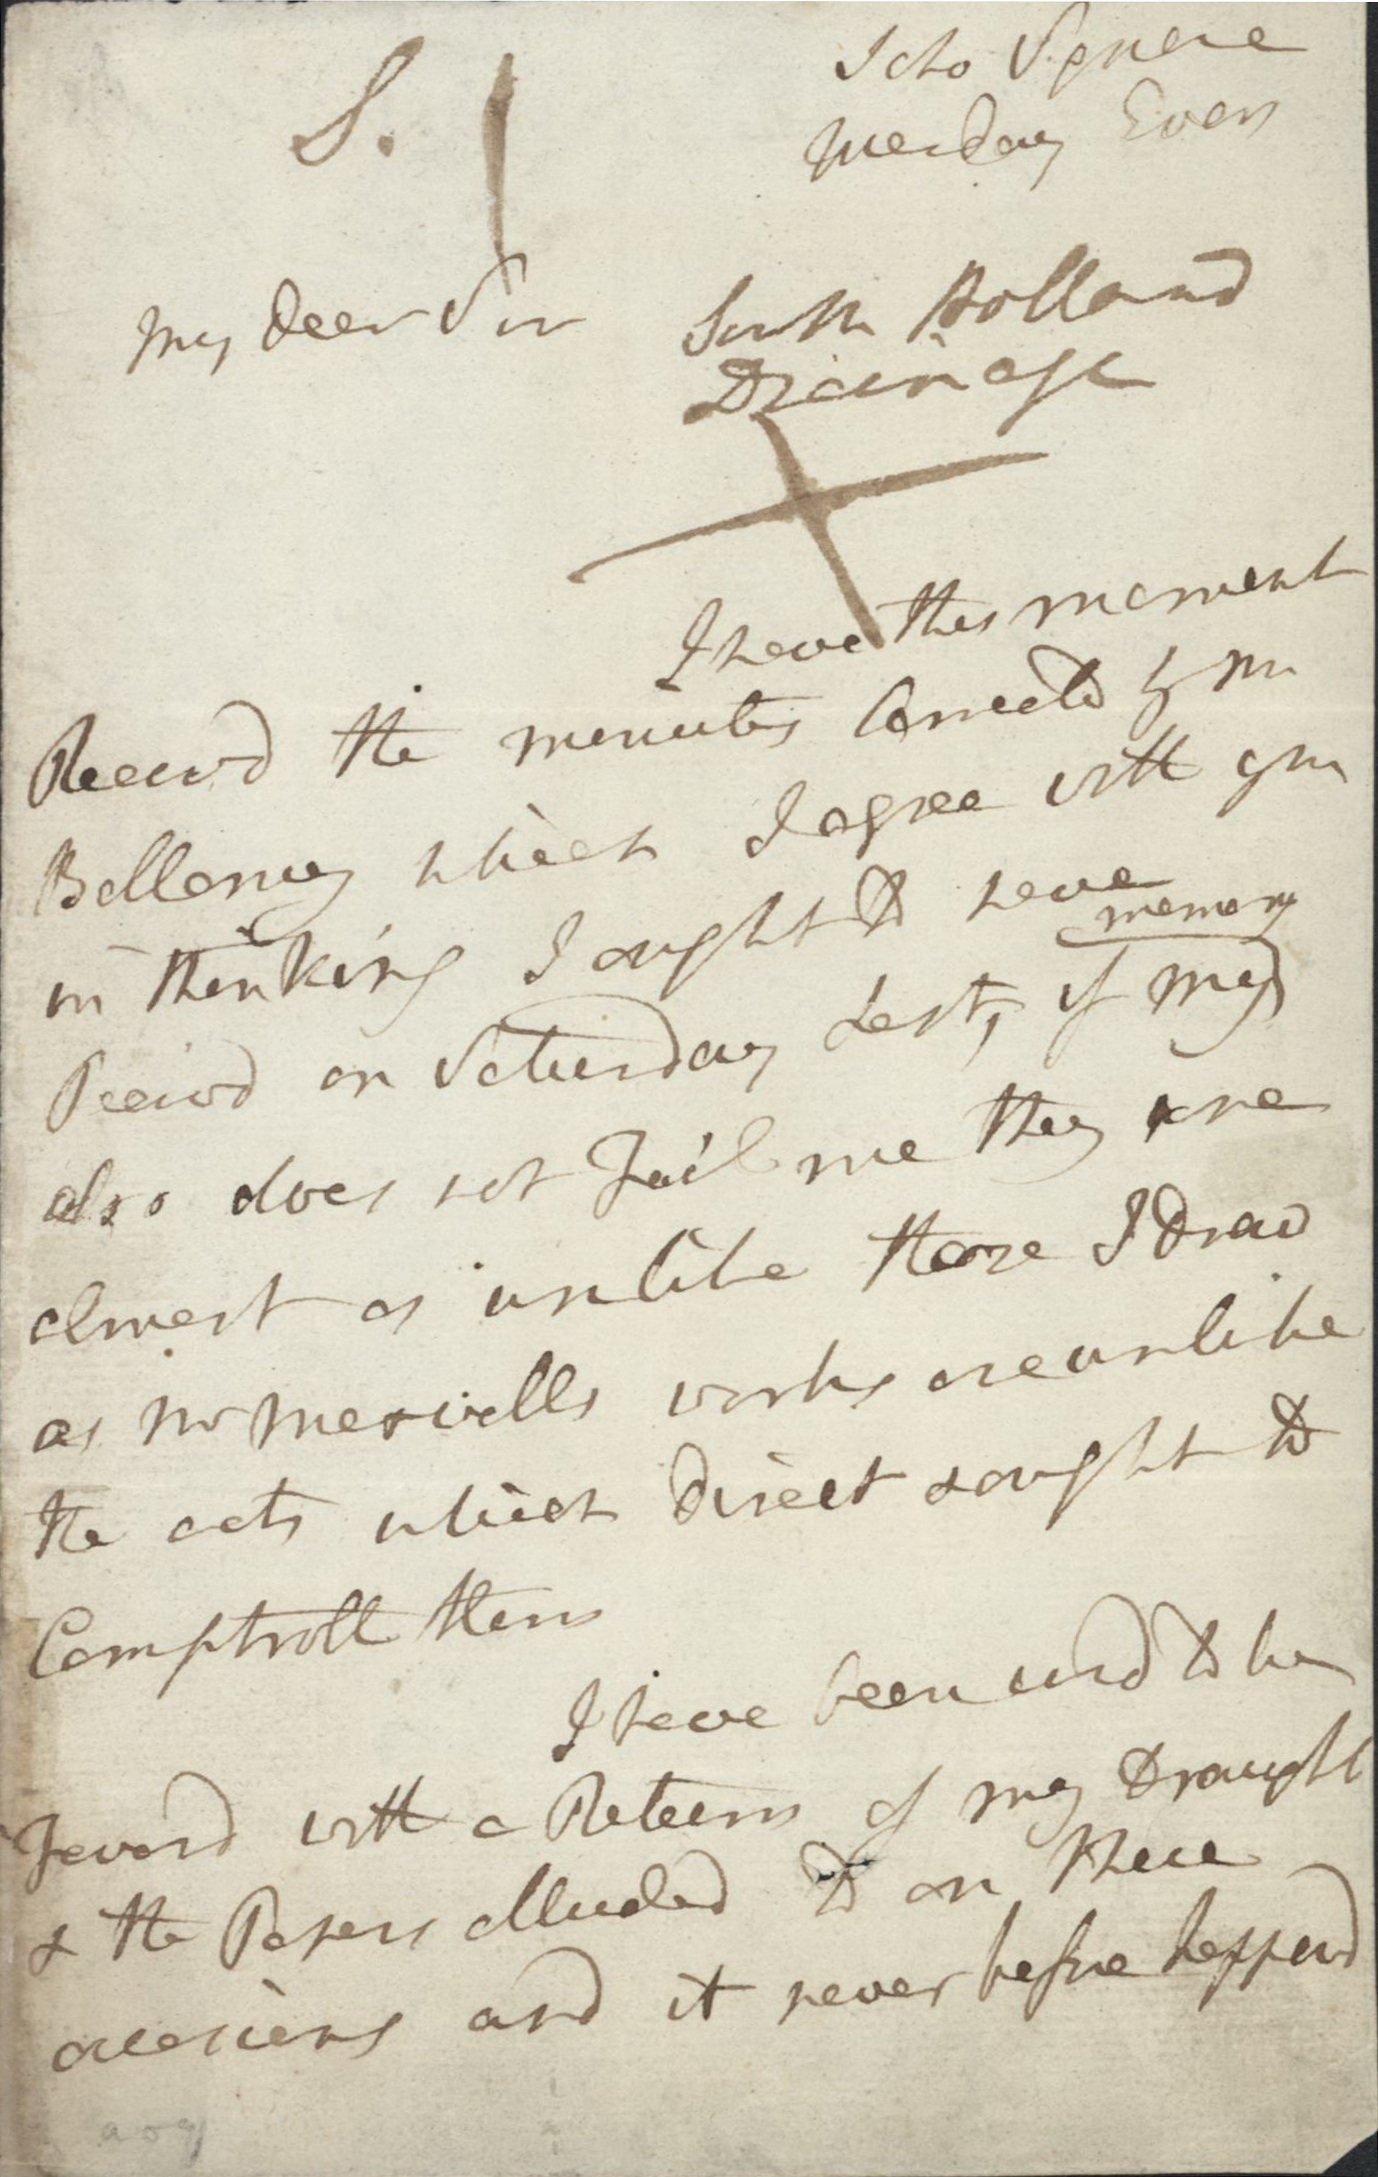 Soho Square
Tuesday Even
S.
My dear Sir
South Holland
Drainage
I have this moment
Receivd the minutes Corrected by Mr
Bellamy which I agree with you
in thinking I ought to have
memory
Receivd on Saturday Last, if my
also does not Fail me they are
almost as unlike those I drew
as Mr Maxwells works are unlike
the acts which direct & ought to
Comptroll them
I have been usd to be
Favord with a Return of my Draught
& the Papers alluded to on these
occasions and it never before happend